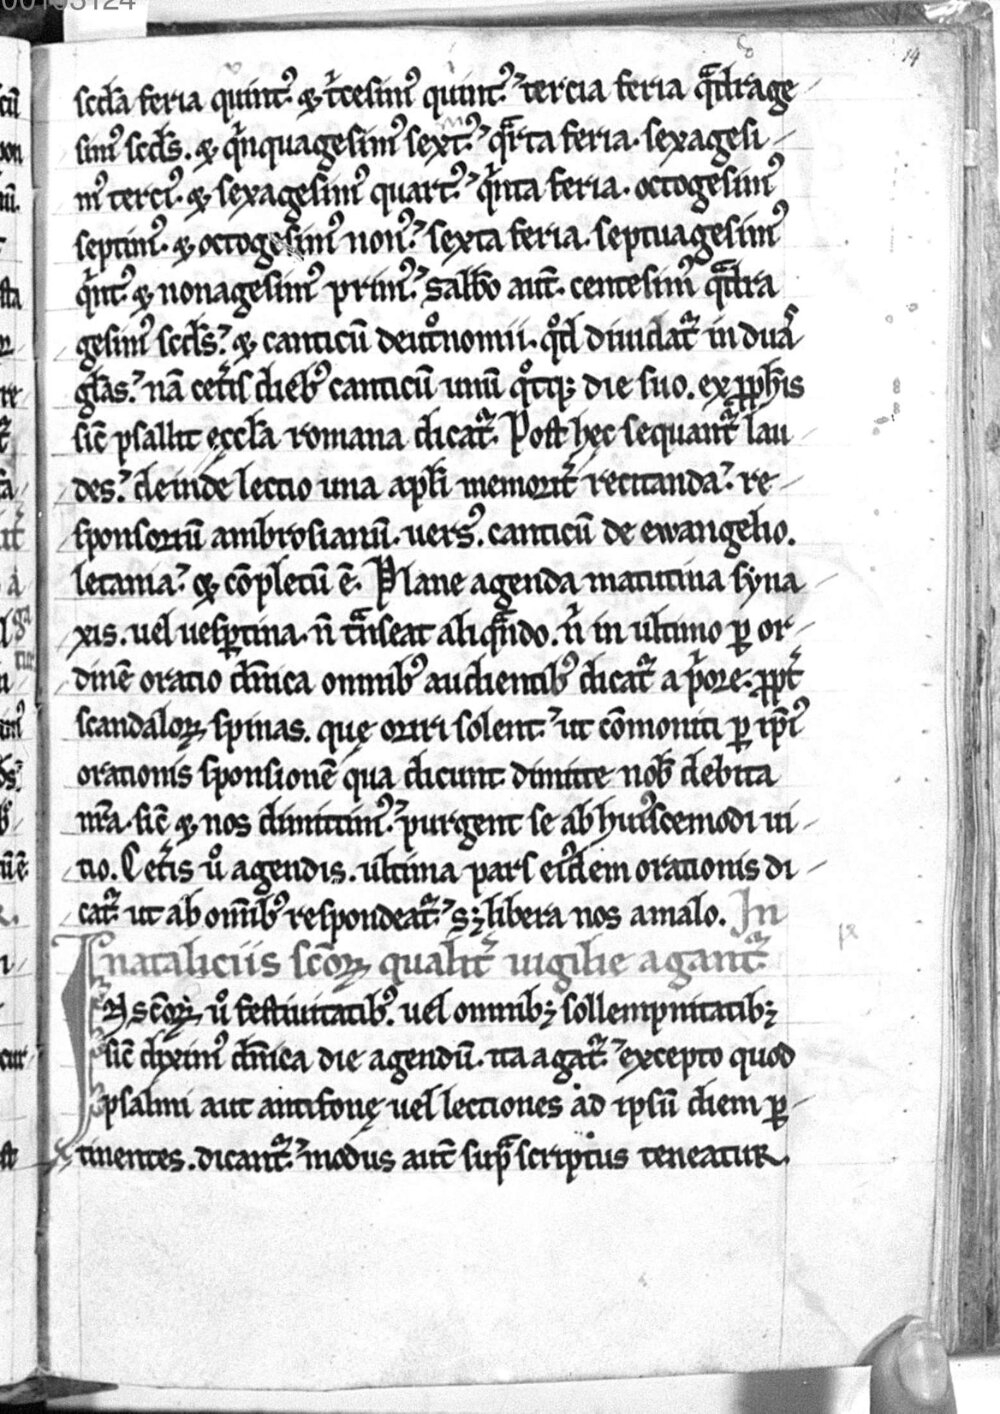 00193124
14
scd̄a feria quintꝰ. & t̓cesimꝰ quintꝰ. tercia feria qᷓdrage
simꝰ scd̄s. & qⁱnquagesimꝰ sextꝰ. qᷓrta feria. sexagesi
mꝰ terciꝰ. & sexagesimꝰ quartꝰ. qⁱnta feria. octogesimꝰ
septimꝰ. & octogesimꝰ nonꝰ. sexta feria. septuagesimꝰ
qⁱntꝰ. & nonagesimꝰ primꝰ. Sabb̄o aut̄. centesimꝰ qᷓdra
gesimꝰ scd̄s. & canticū deut̓onomii. qͦd diuidat᷑ in duas
gl̄as. nā cet̓is diebꝰ canticū unū qͦtq; die suo. ex ꝓph̄is
sic̄ psallit ęccl̄a romana dicat᷑. Post hęc sequant᷑ lau
des. deinde lectio una apl̄i memorit̓ recitanda. re
sponsoriū ambrosianū. uersꝰ. canticū de ewangelio.
letania. & cōpletū ē. Plane agenda matutina syna
xis. uel uesꝑtina. n̄ tᷓnseat aliqᷓndo. nⁱ in ultimo ꝑ or
dinē oratio dn̄ica omnibꝰ audientibꝰ dicat᷑ a pⁱore. ꝓpt̓
scandaloꝝ spinas. quę oriri solent. ut cōmoniti ꝑ ip̄iꝰ
orationis sponsionē qua dicunt dimitte nob̄ debita
nr̄a. sic̄ & nos dimittimꝰ. purgent se ab huiꝰcemodi ui
tio. Cet̓is uͦ agendis. ultima pars eiꝰdem orationis di
cat᷑. ut ab om̄ibꝰ respondeat᷑. sꝫ libera nos a malo. In
nataliciis sc̄oꝝ qualit̓ uigilie agant᷑
IN sc̄oꝝ uͦ festiuitatibꝰ. uel omnibꝫ sollempnitatibꝫ
sic̄ diximꝰ dn̄ica die agendū. ita agat᷑. excepto quod
psalmi aut antifonę uel lectiones ad ipsū diem ꝑ
tinentes. dicant᷑. modus aut̄ supᷓscriptus teneatur.